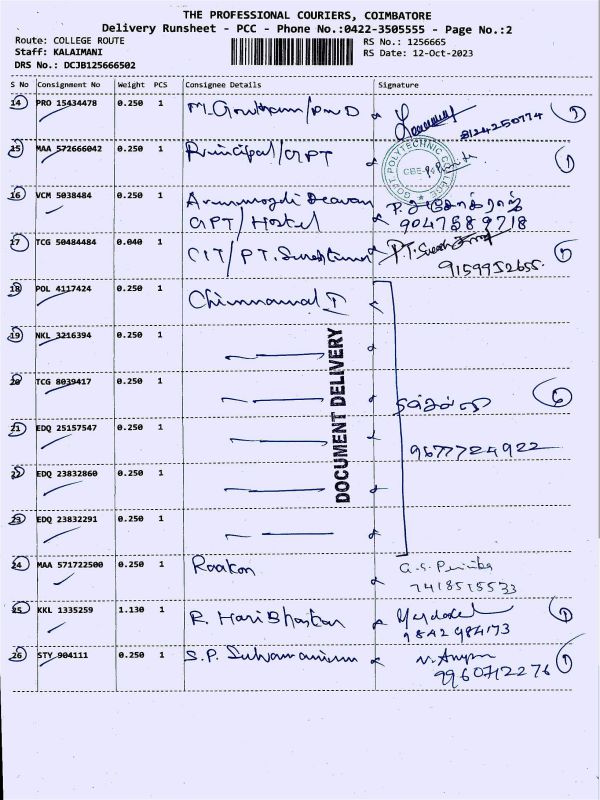 THE PROFESSIONAL COURIERS, COIMBATORE
Delivery Runsheet - PCC - Phone No.:0422-3505555 - Page No.:2
Route: COLLEGE ROUTE RS No.: 1256665
Staff: KALAIMANI RS Date: 12-Oct-2023
DRS No.: DCJB125666502
S No Consignment No Weight PCS Consignee Details Signature
14 PRO 15434478 0.250 1
8124250774
15 MAA 572666042 0.250 1 Principal/GPT
GOVT POLYTECHNIC COLLEGE
CBE-14
16 VCM 5038484 0.250 1
GPT/Hostel
17 TCG 50484484 0.040 1 CIT/PT.
9159952655.
18 POL 4117424 0.250 1
19 NKL 3216394 0.250 1
20 TCG 8039417 0.250 1
21 EDQ 25157547 0.250 1
9677724922
22 EDQ 23832860 0.250 1
23 EDQ 23832291 0.250 1
DOCUMENT DELIVERY
24 MAA 571722500 0.250 1 Raakon
7418515533
25 KKL 1335259 1.130 1 R. Hari Bhaskar
9842984173
26 STY 904111 0.250 1 S.P.
9960712276